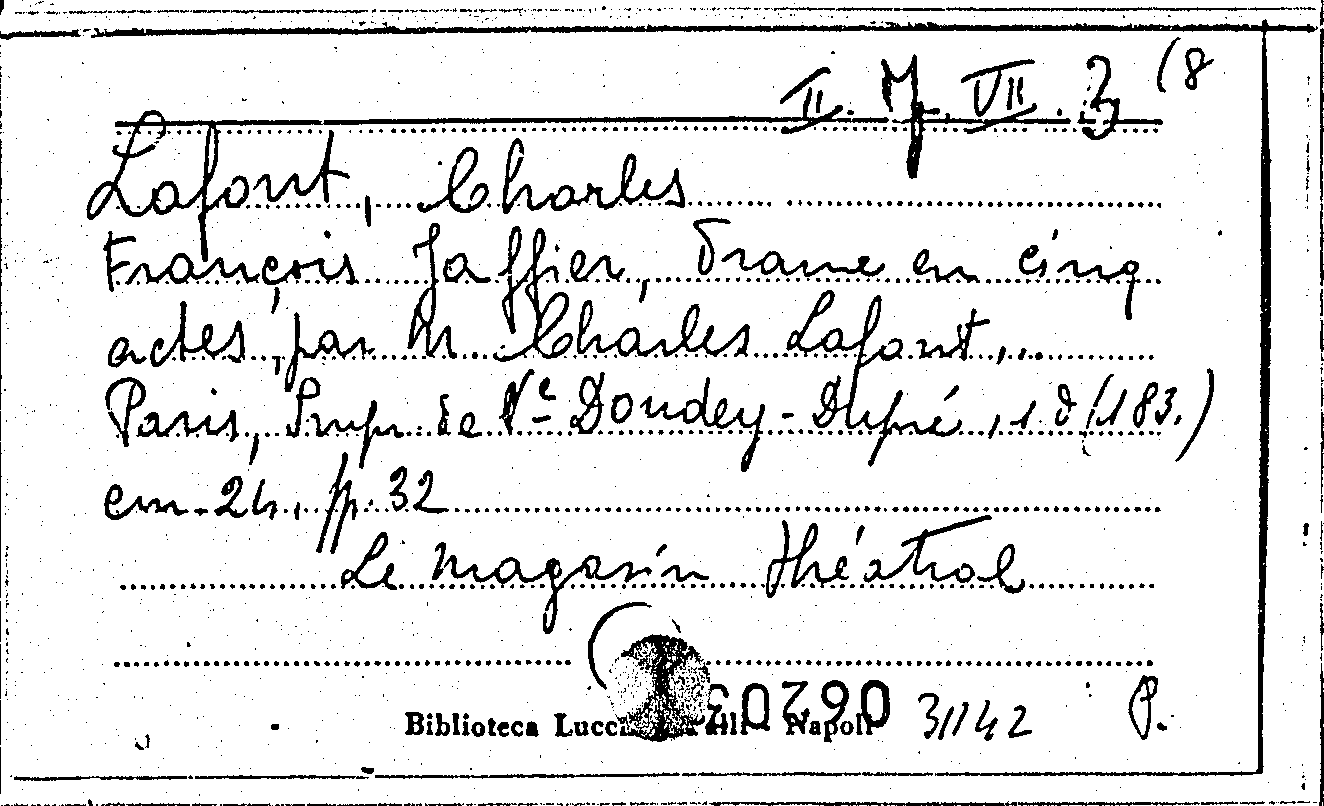 II. M. VII. 3 (8
Lafont, Charles
François Jaffier, drame en cinq
actes, par M. Charles Lafont...
Paris, Imp. de Ve Dondey-Dupré, 1 d (183.)
cm. 24, pp. 32
Le magasin théatral
Biblioteca Lucc - Napoli 31142 P.